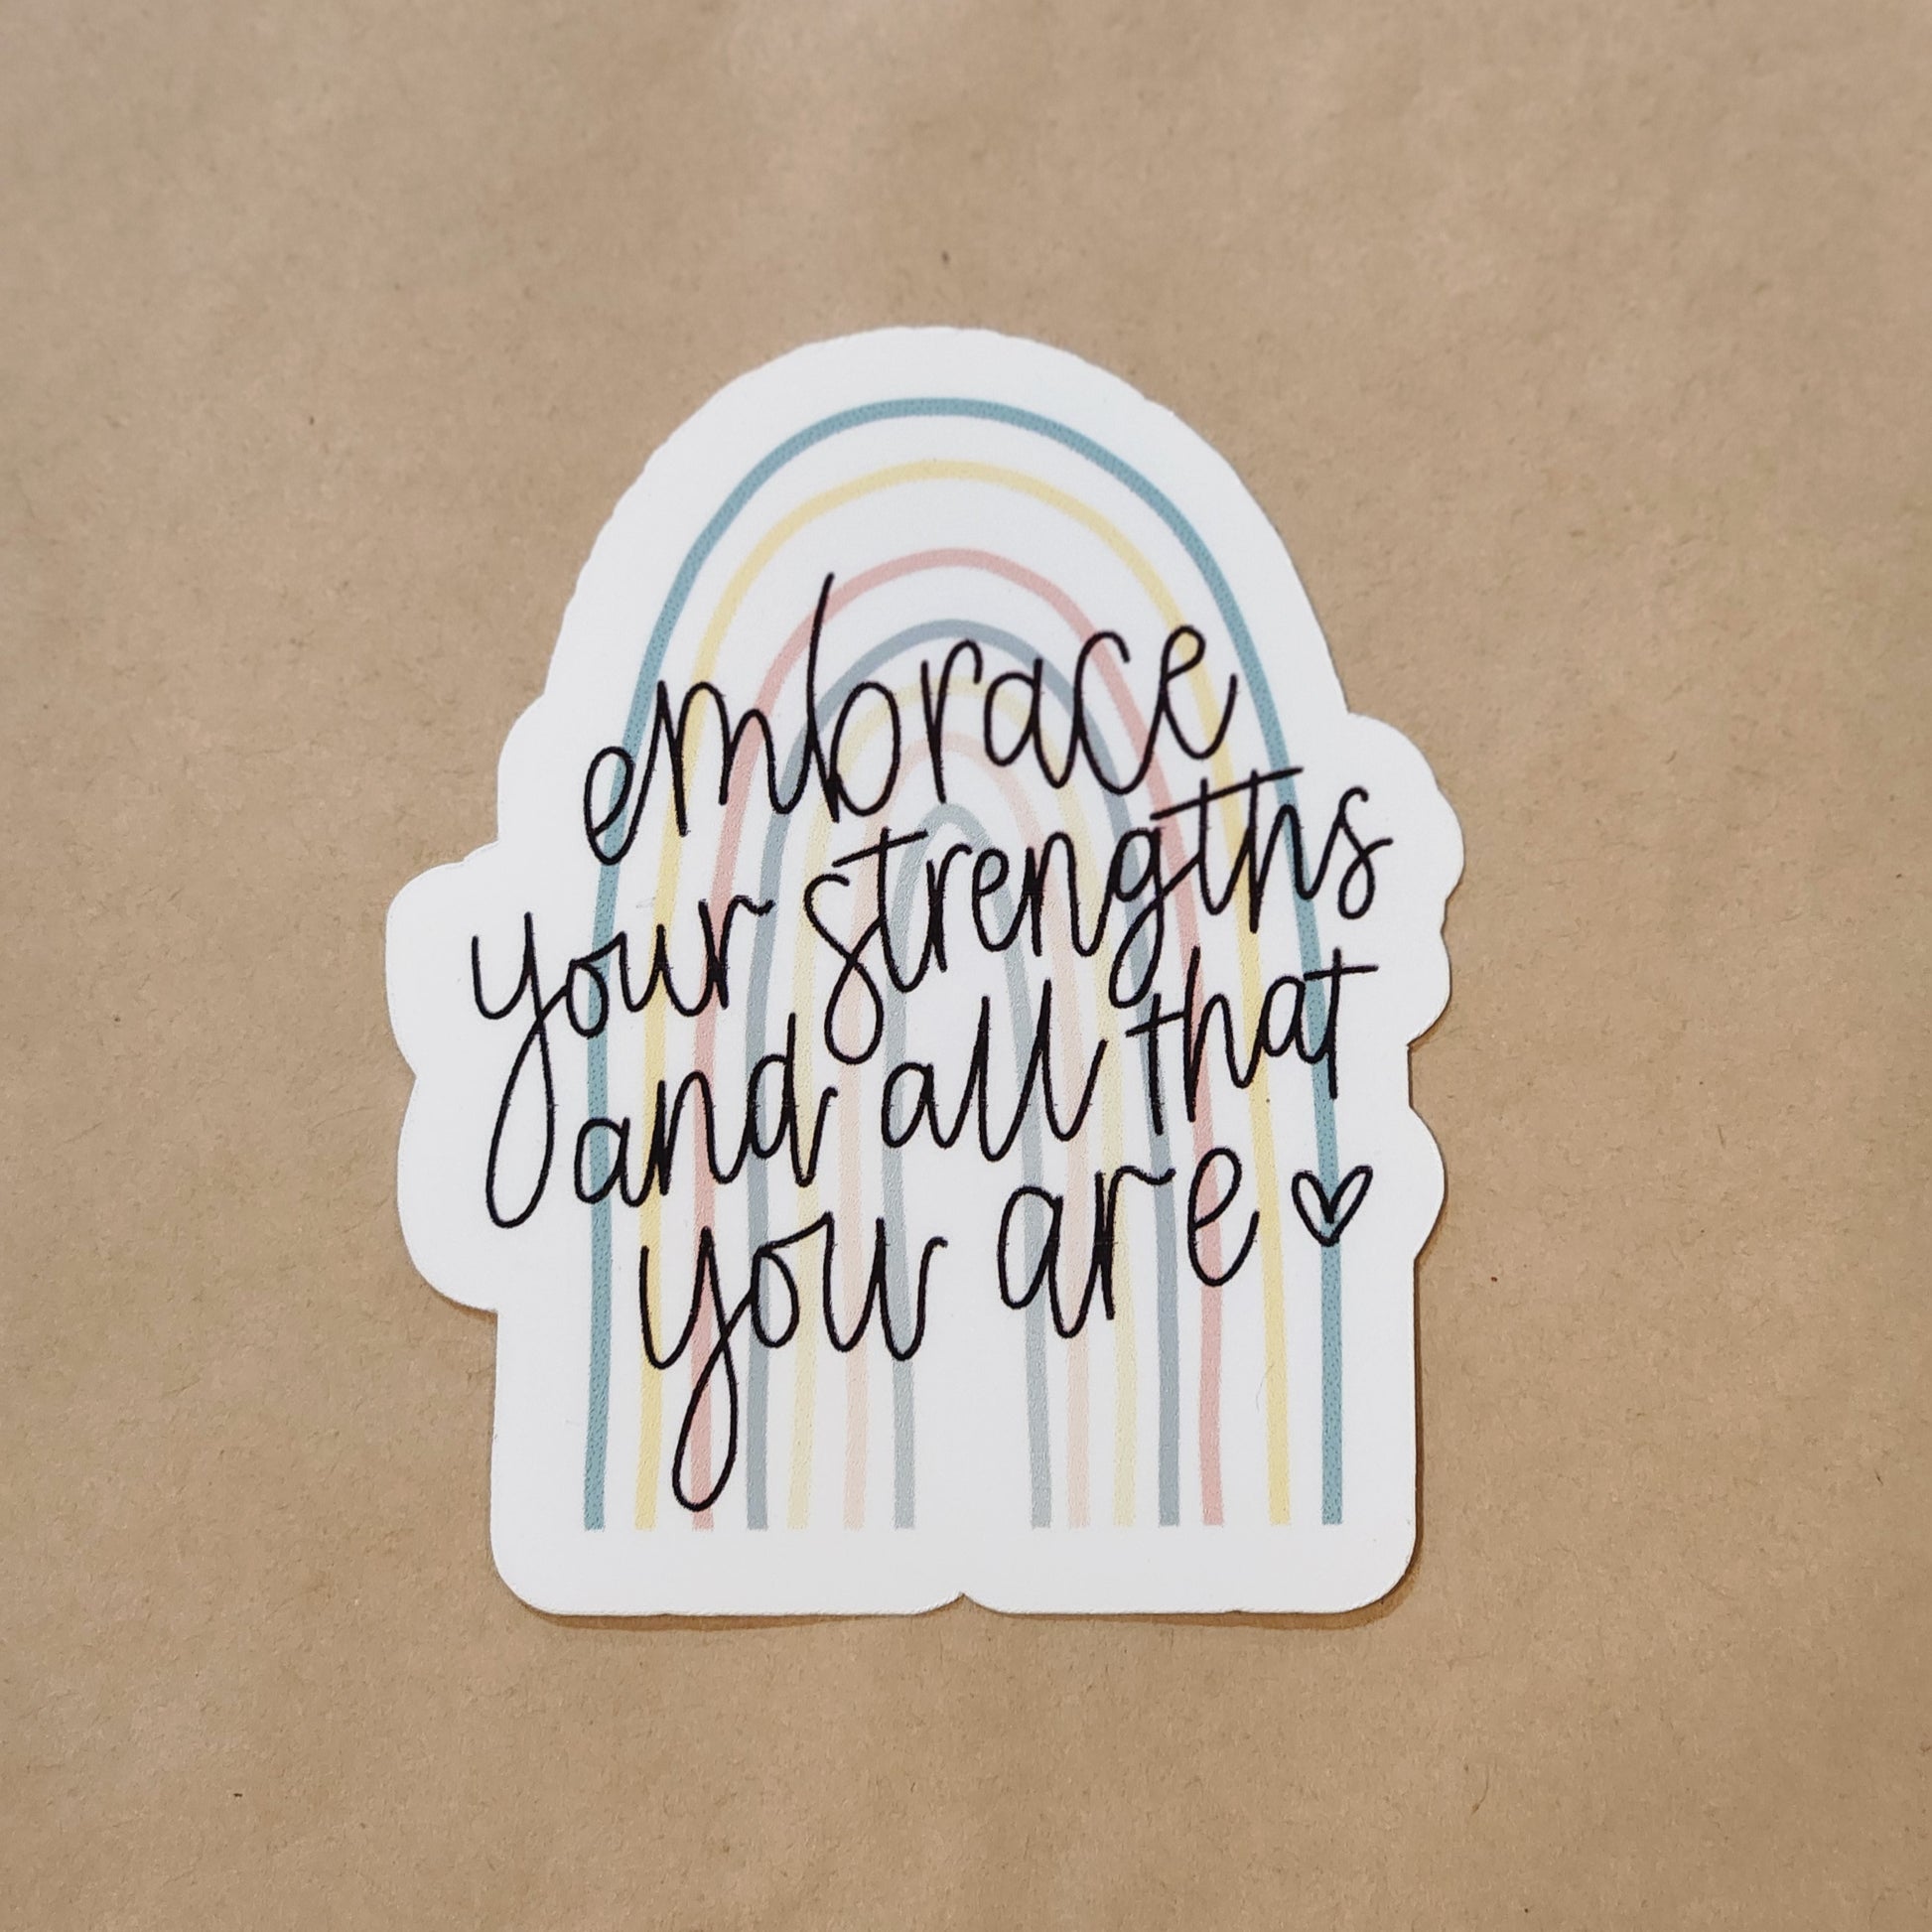 embrace
your strengths
and all that
you are